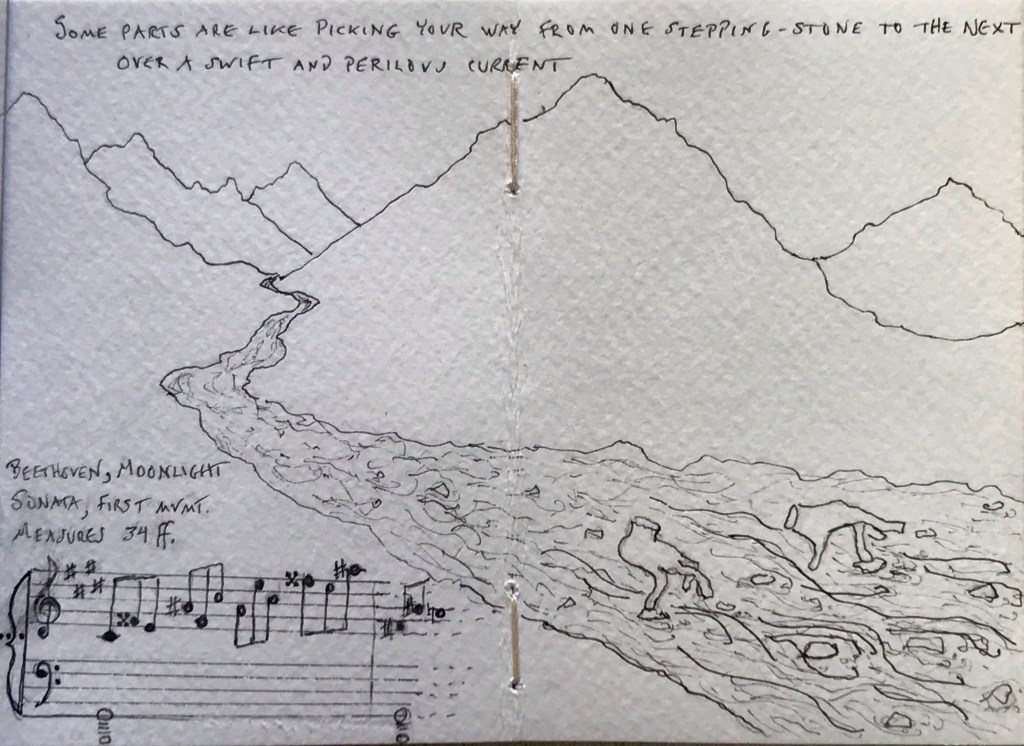 SOME PARTS ARE LIKE PICKING YOUR WAY FROM ONE STEPPING-STONE TO THE NEXT
OVER A SWIFT AND PERILOUS CURRENT
BEETHOVEN, MOONLIGHT
SONATA, FIRST MVMT.
MEASURES 34 ff.